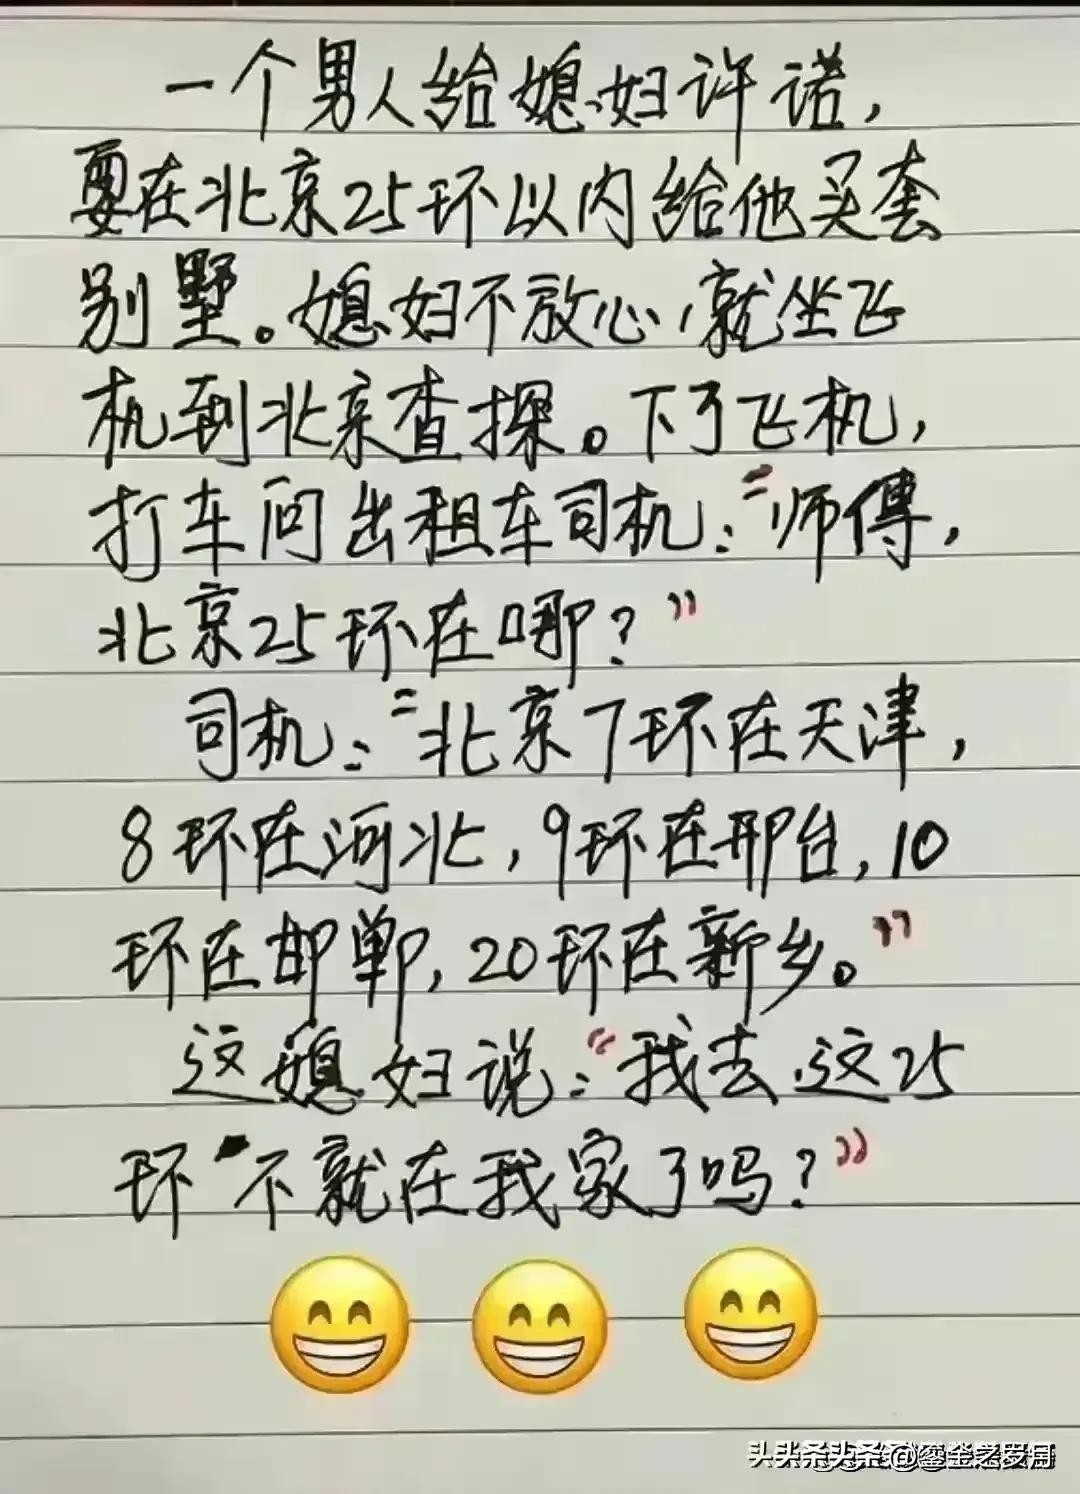 一个男人给媳妇许诺，
要在北京25环以内给他买套
别墅。媳妇不放心，就坐飞
机到北京查探。下了飞机，
打车问出租车司机：“师傅，
北京25环在哪？”
司机：“北京7环在天津，
8环在河北，9环在邢台，10
环在邯郸，20环在新乡。”
这媳妇说：“我去，这25
环不就在我家了吗？”
😁😁😁
头条头条@鎏金之岁月